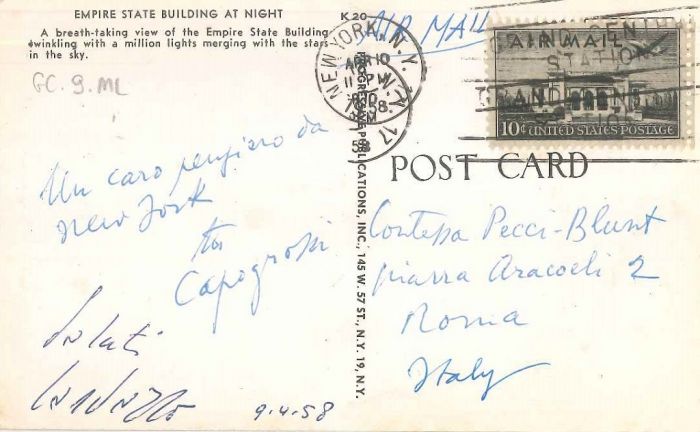 EMPIRE STATE BUILDING AT NIGHT
A breath-taking view of the Empire State Building
twinkling with a million lights merging with the stars
in the sky.
GC. 9. ML
K 20
AIR MAIL
NEW YORK, N.Y.
APR 10
1958
AIR MAIL
10¢ UNITED STATES POSTAGE
GRAND CENT
STATION
POST CARD
PROGRESSIVE PUBLICATIONS, INC., 145 W. 57 ST., N.Y. 19, N.Y.
Un caro pensiero da
New York
Capogrossi
Saluti
9.4.58
Contessa Pecci-Blunt
piazza Aracoeli 2
Roma
Italy